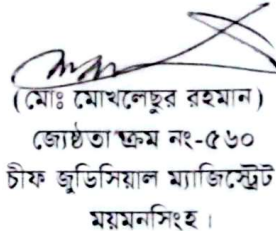 (মোঃ মোখলেছুর রহমান)
জ্যেষ্ঠতা ক্রম নং-৫৬০
চীফ জুডিসিয়াল ম্যাজিস্ট্রেট
ময়মনসিংহ।